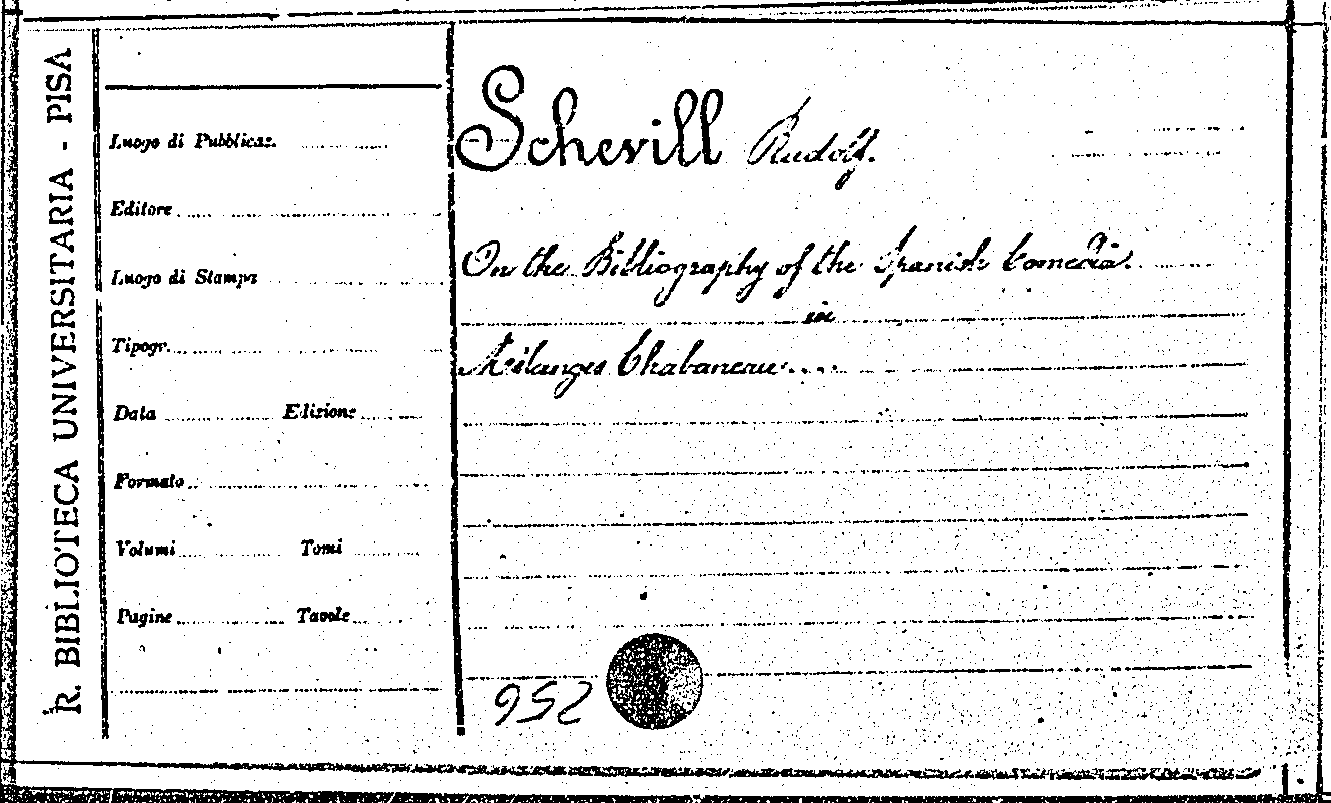 R. BIBLIOTECA UNIVERSITARIA - PISA
Luogo di Pubblicaz.
Editore
Luogo di Stampa
Tipogr.
Data Edizione
Formato
Volumi Tomi
Pagine Tavole
Schevill Rudolf.
On the Bibliography of the Spanish Comedia.
in
Mélanges Chabaneau....
952